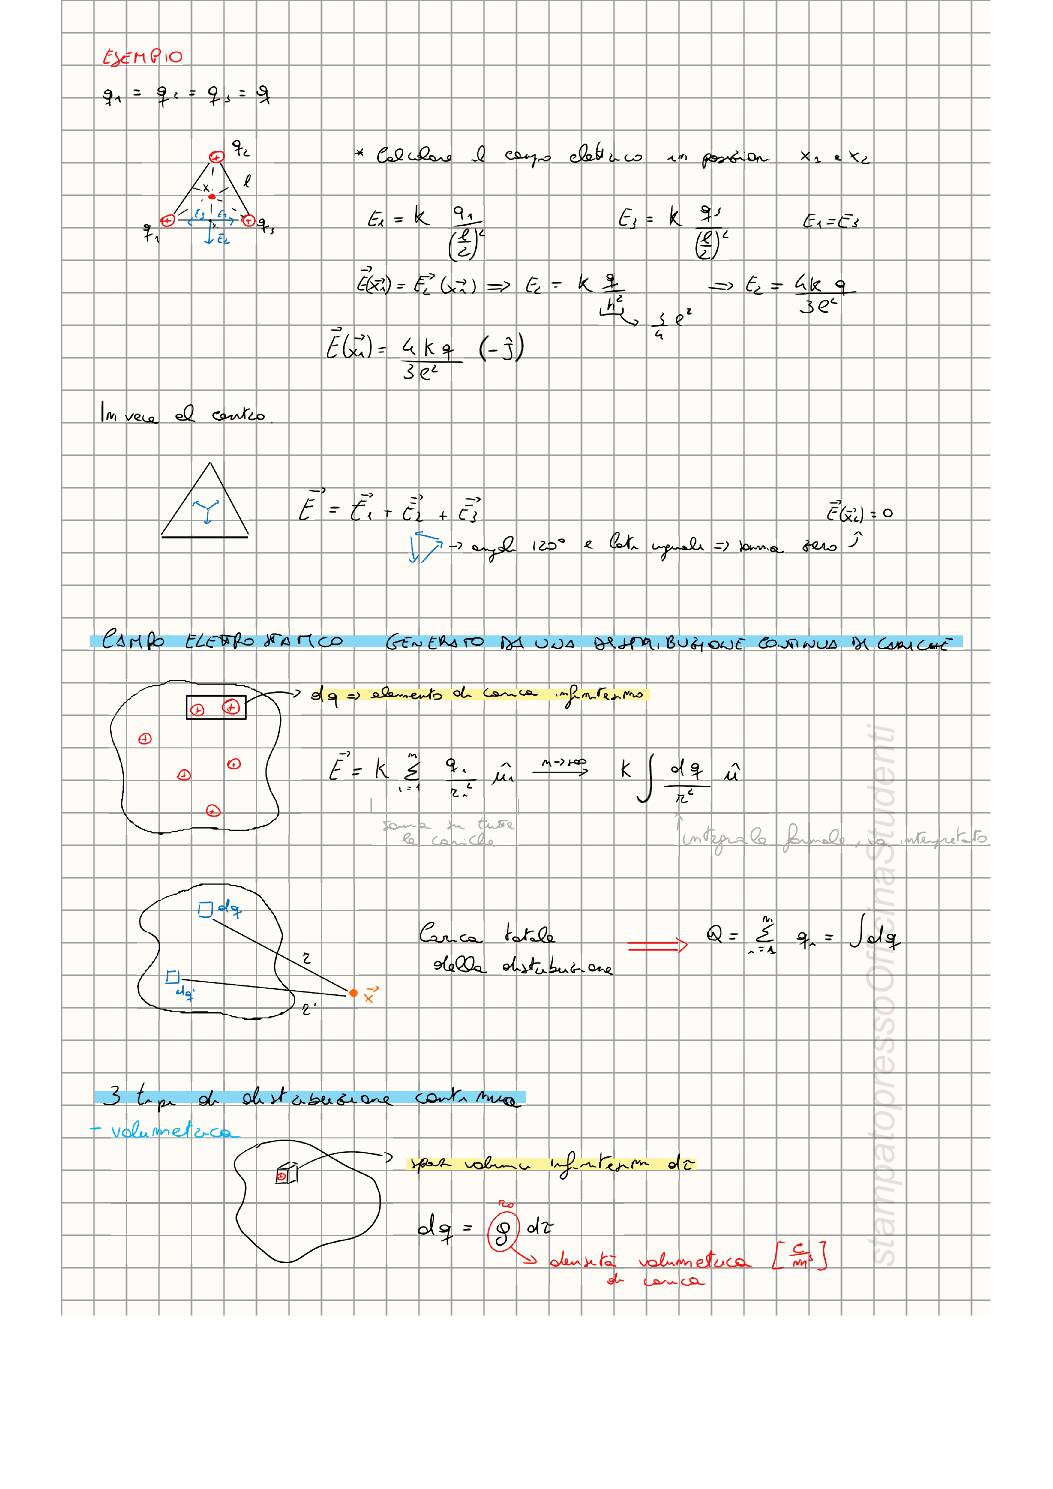 ESEMPIO
q₁ = q₂ = q₃ = q
q₂
* Calcolare il campo elettrico in posizion x₁ e x₂
x₂ l
E₁ = k q₁/(l/2)² E₃ = k q₃/(l/2)² E₁=E₃
E₃ E₁
q₁ q₃
E₂
E⃗(x⃗₁) = E₂⃗(x⃗₁) ⇒ E₂ = k q/h² ⇒ E₂ = 4k q/3l²
→ 3/4 l²
E⃗(x⃗₁) = 4 k q/3l² (-ĵ)
Invece al centro.
E⃗ = E⃗₁ + E⃗₂ + E⃗₃ E⃗(x⃗₂) = 0
→ angoli 120° e lati uguali => somma zero
CAMPO ELETTROSTATICO GENERATO DA UNA DISTRIBUZIONE CONTINUA DI CARICHE
dq => elemento di carica infinitesimo
E⃗ = k Σ(i=1, n) qᵢ/rᵢ² ûᵢ n→+∞ → k ∫ dq/r² û
somma su tutte
le cariche
integrale formale, va interpretato
dq
Carica totale
della distribuzione
⇒ Q = Σ(i=1, n) qᵢ = ∫dq
r
dq'
x⃗
r'
3 tipi di distribuzione continua
- volumetrica
spazi volumi infinitesimi dτ
ro
dq = ρ dτ
→ densità volumetrica [C/m³]
di carica
stampatopressoOfficinaStudenti